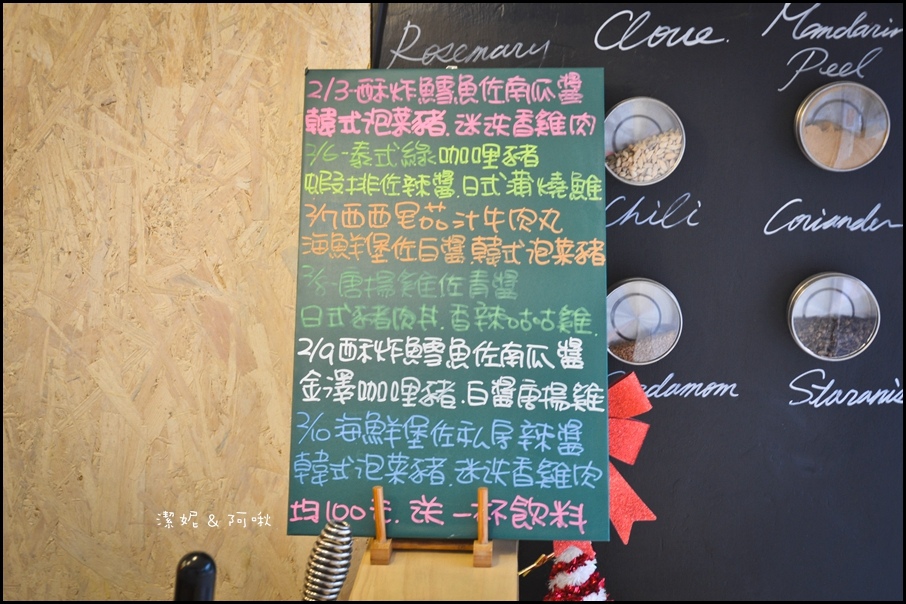 2/3-酥炸鱈魚佐南瓜醬
韓式泡菜豬.迷迭香雞肉
2/6-泰式綠咖哩豬
蝦排佐辣醬.日式蒲燒鯛
2/7西西里茄汁牛肉丸
海鮮堡佐白醬.韓式泡菜豬
2/8-唐揚雞佐青醬
日式豬肉丼.香辣咕咕雞.
2/9酥炸鱈魚佐南瓜醬
金澤咖哩豬.白醬唐揚雞
2/10海鮮堡佐私房辣醬
韓式泡菜豬.迷迭香雞肉
均100元.送一杯飲料
Rosemary
Clove.
Mandarin
Peel
Chili
Coriander
damom
Staranis
潔妮&阿啾